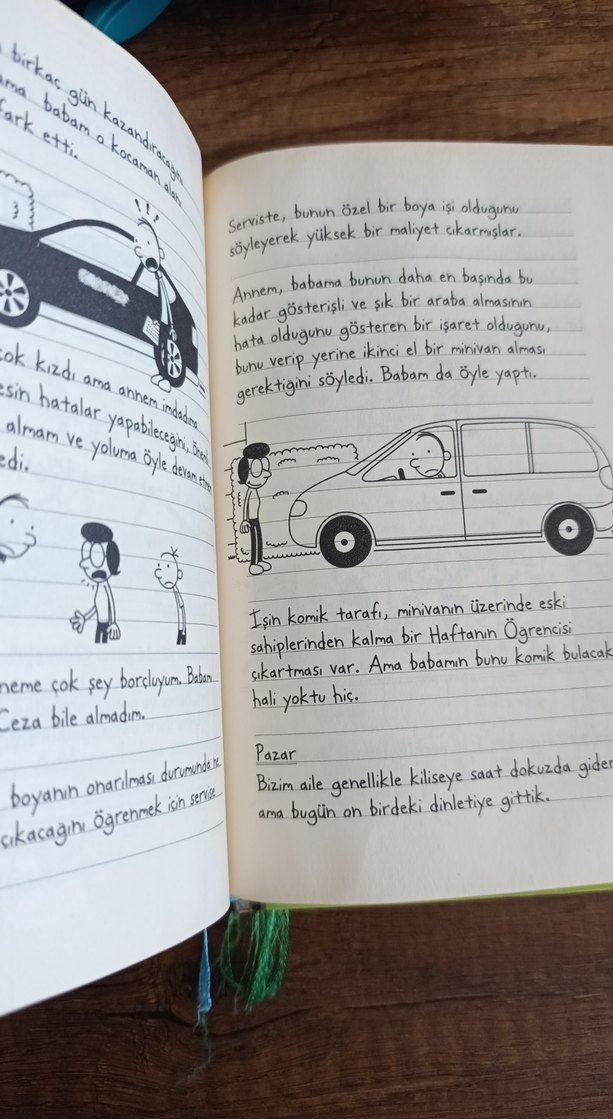 birkaç gün kazandıracağını
ama babam o kocaman alanı
fark etti.
! ! !
çok kızdı ama annem imdadıma
hatalar yapabileceğini, önemli
almam ve yoluma öyle devam etmem
çok şey borçluyum. Babam
Ceza bile almadım.
boyanın onarılması durumunda ne
çıkacağını öğrenmek için servise
Serviste, bunun özel bir boya işi olduğunu
söyleyerek yüksek bir maliyet çıkarmışlar.
Annem, babama bunun daha en başında bu
kadar gösterişli ve şık bir araba almasının
hata olduğunu gösteren bir işaret olduğunu,
bunu verip yerine ikinci el bir minivan alması
gerektiğini söyledi. Babam da öyle yaptı.
İşin komik tarafı, minivanın üzerinde eski
sahiplerinden kalma bir Haftanın Öğrencisi
çıkartması var. Ama babamın bunu komik bulacak
hali yoktu hiç.
Pazar
Bizim aile genellikle kiliseye saat dokuzda gider
ama bugün on birdeki dinletiye gittik.